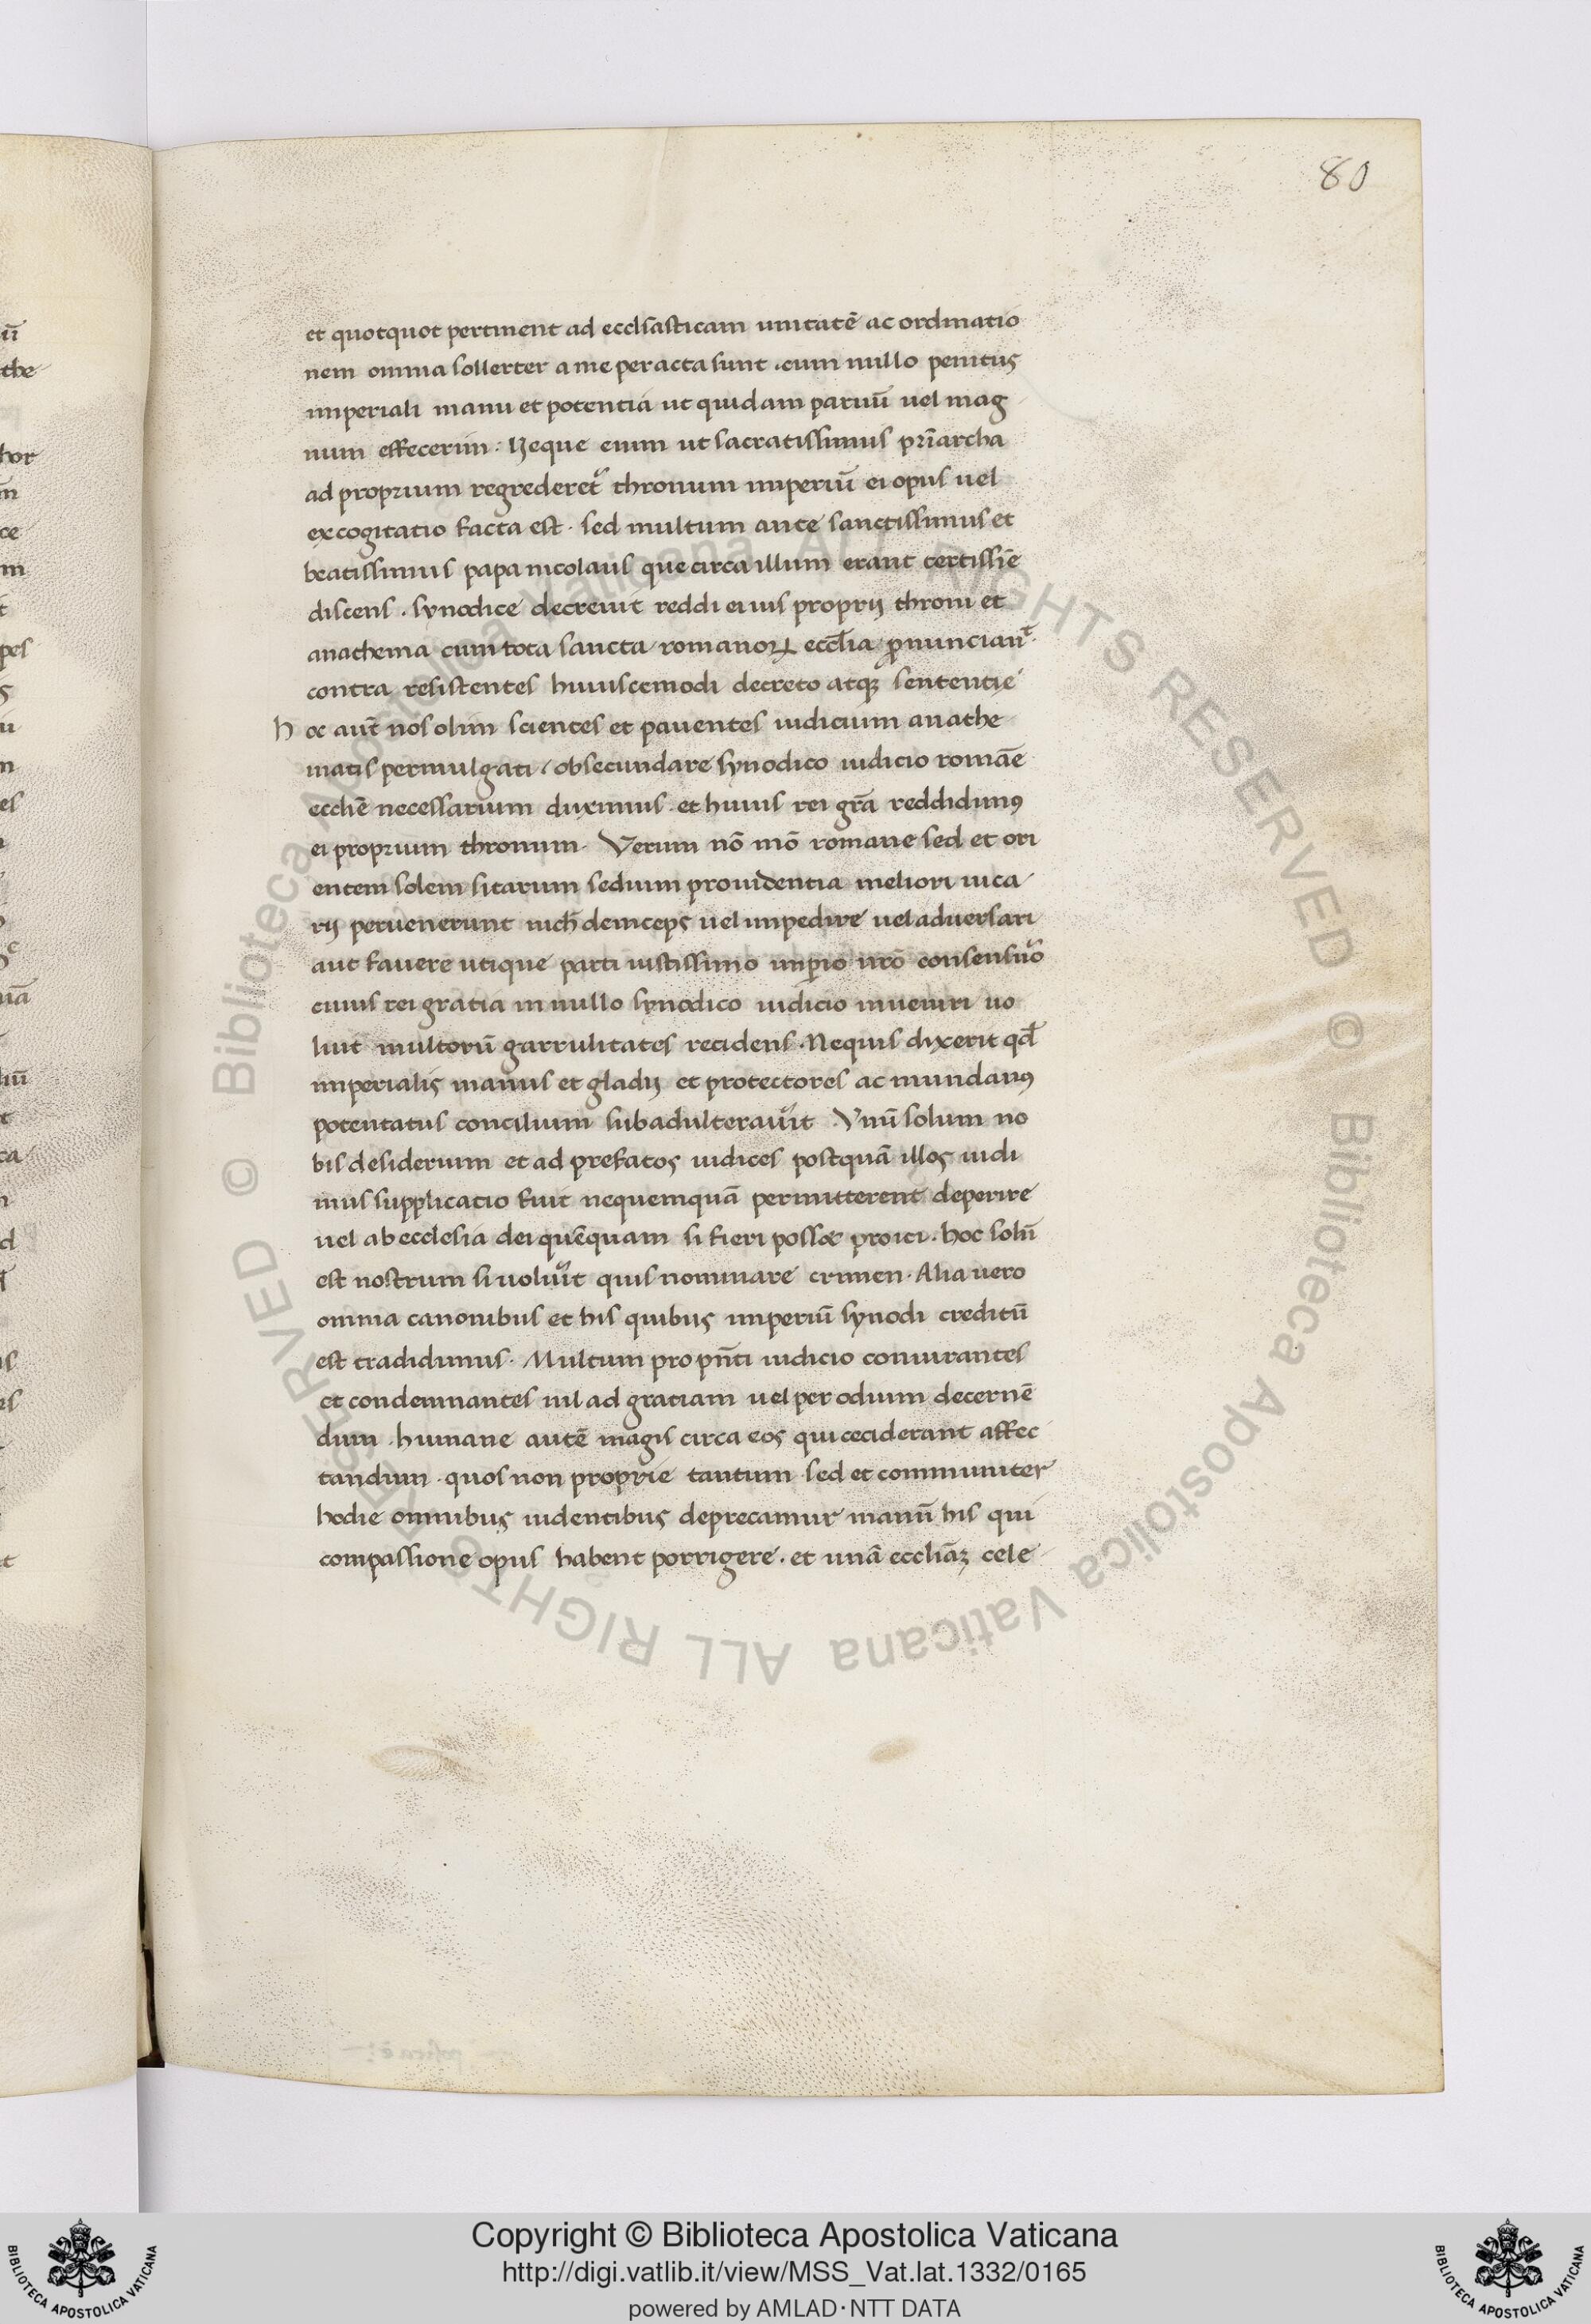 80
et quotquot pertinent ad ecclsasticam unitatē ac ordinatio
nem omnia sollerter a me peracta sunt. cum nullo penitus
imperiali manu et potentia ut quidam paruū uel mag
num effecerim. Neque enim ut sacratissimus pr̄iarcha
ad proprium regrederet᷑ thronum imperiū ei opus uel
excogitatio facta est. sed multum ante sanctissimus et
beatissimus papa nicolaus que circa illum erant certissīe
discens. synodice decreuit reddi ei ius proprij throni et
anathema cum tota sancta romanoꝝ eccl̄ia ꝓnunciaut
contra resistentes huiuscemodi decreto atqꝫ sententię
hoc aut̄ nos olim scientes et pauentes iudicium anathe
matis permulgati. obsecundare synodico iudicio romāe
eccliē necessarium duximus. et huius rei gr̄a reddidimꝰ
ei proprium thronum. Verum nō mō romane sed et ori
entem solem sitarum sedium prouidentia meliori uica
rij peruenerunt deinceps uel impedire uel aduersari
aut fauere utique parti iustissimo imꝑio nr̄o
cuius rei gratia in nullo synodico iudicio inueniri uo
luit multorū garrulitates recidens. Nequis dixerit qd̄
imperialis manus et gladij et protectores ac mundanꝰ
potentatus concilium subadulterau᷑it. Vnū solum no
bis desiderium et ad prefatos iudices postquā illos uidi
mus supplicatio fuit nequemquā permitterent deperire
uel ab ecclesia dei quēquam si fieri posset proici. hoc solū
est nostrum si uolu᷑it quis nominare crimen. Alia uero
omnia canonibus et his quibus imperiū synodi creditū
est tradidimus. Multum pro pn̄ti iudicio coniurantes
et condemnantes nil ad gratiam uel per odium decernē
dum. humane autē magis circa eos qui ceciderant affec
tandum. quos non proprie tantum sed et communiter
hodie omnibus uidentibus deprecamur manū his qui
compassione opus habent porrigere. et unā eccliāꝫ cele
© Biblioteca Apostolica Vaticana ALL RIGHTS RESERVED © Biblioteca Apostolica Vaticana ALL RIGHTS RESERVED
Copyright © Biblioteca Apostolica Vaticana
http://digi.vatlib.it/view/MSS_Vat.lat.1332/0165
powered by AMLAD·NTT DATA
BIBLIOTECA APOSTOLICA VATICANA
BIBLIOTECA APOSTOLICA VATICANA